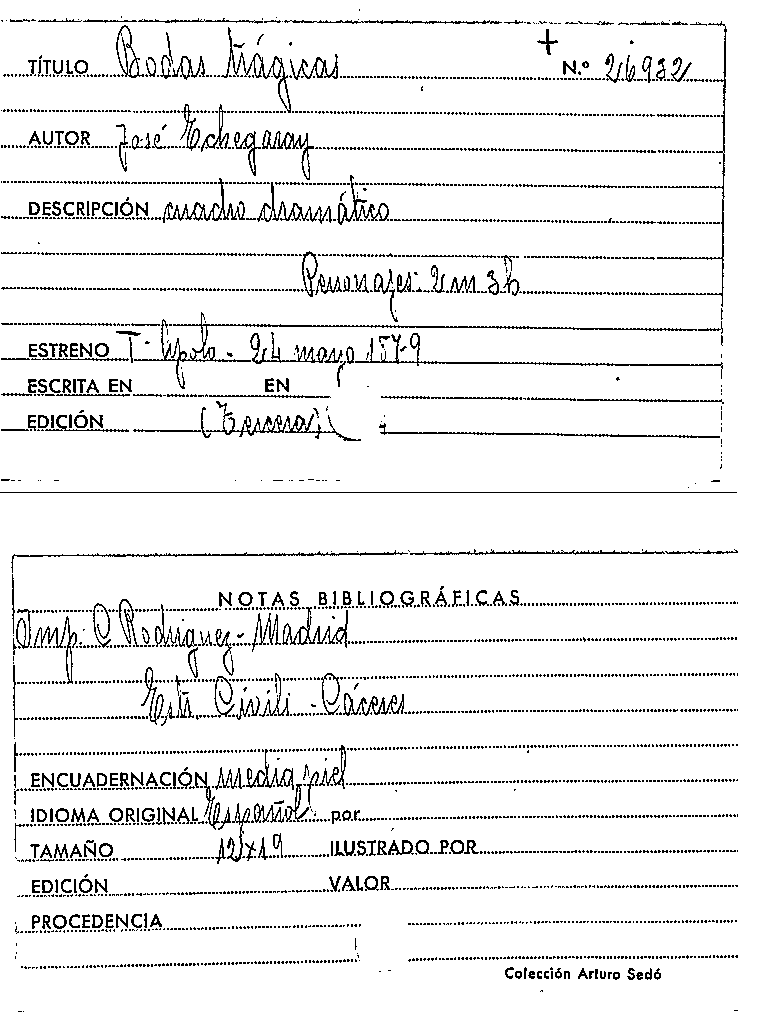 TÍTULO Bodas trágicas + N.º 26932
AUTOR José Echegaray
DESCRIPCIÓN cuadro dramático
Personajes: 2 m 3 h
ESTRENO T. Apolo - 24 mayo 1879
ESCRITA EN EN
EDICIÓN (Tercera)
NOTAS BIBLIOGRÁFICAS
Imp. C Rodriguez - Madrid
Estr. Civili - Cáceres
ENCUADERNACIÓN media piel
IDIOMA ORIGINAL Español por
TAMAÑO 12x19 ILUSTRADO POR
EDICIÓN VALOR
PROCEDENCIA
Colección Arturo Sedó